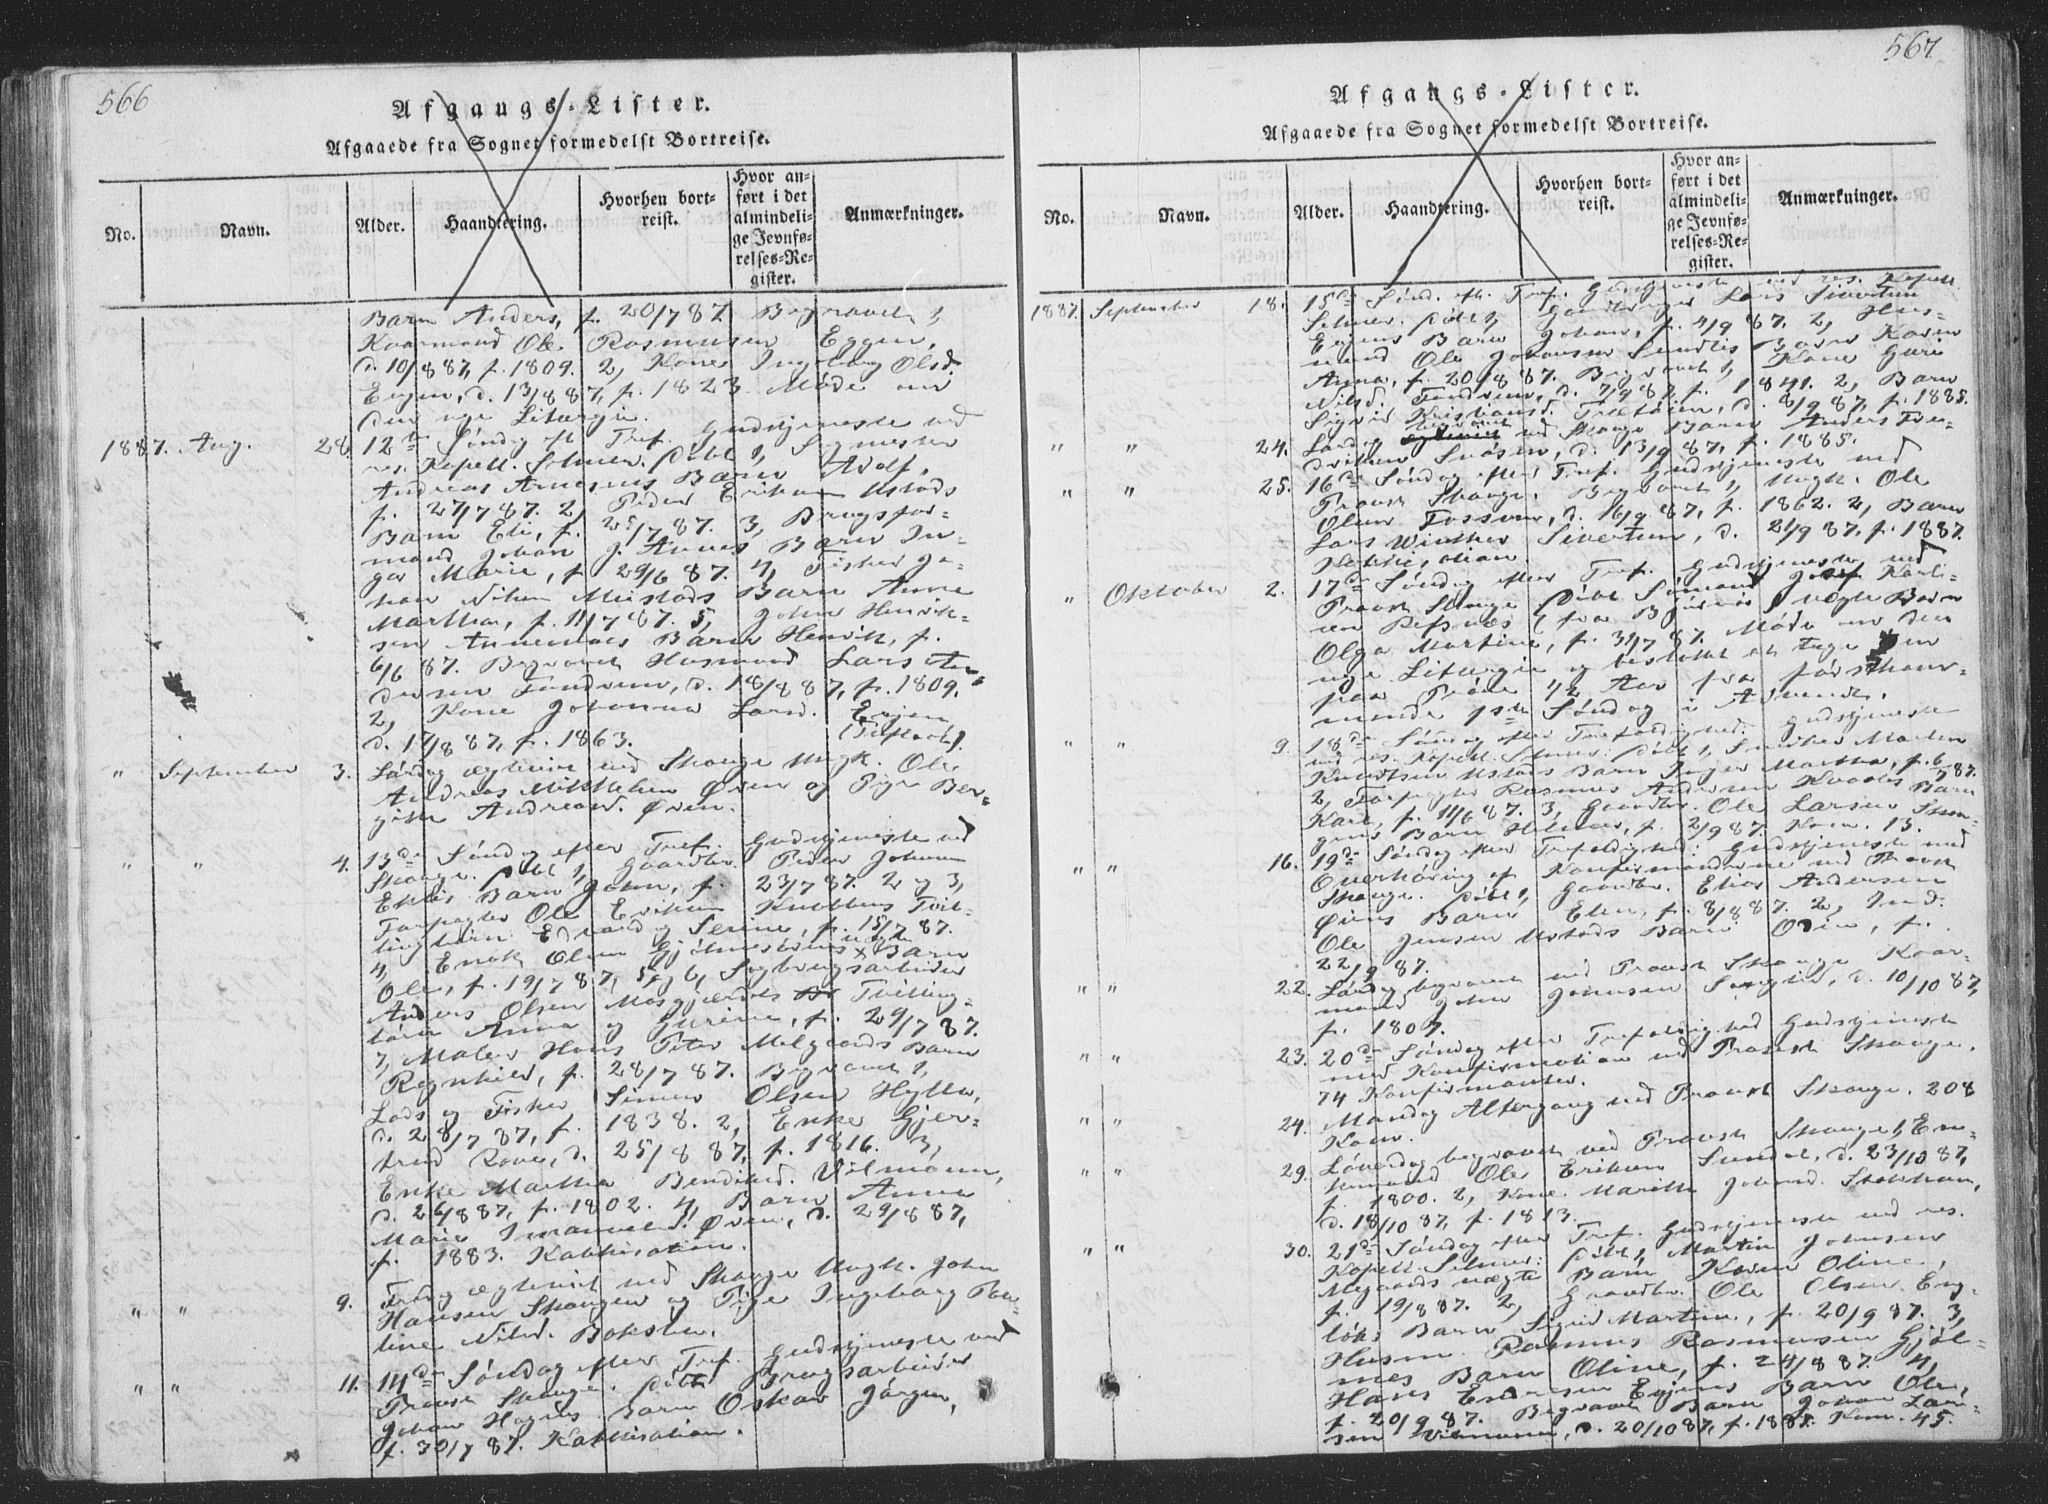 566
Afgangs-Lister.
Afgaaede fra Sognet formedelst Bortreise.
No.
Navn.
Alder.
Haandtering.
Hvorhen bort-
reist.
Hvor an-
ført i det
almindeli-
ge Jevnfø-
relses-Re-
gister.
Anmærkninger.
Barn Anders, f. 20/7 87. Begravet 1,
Kaarmand Ole Rasmusen Eggen,
d. 10/8 87, f. 1809. 2, Kone Ingeborg Olsd.
Eggen, d. 13/8 87, f. 1823. Møde om
den nye Liturgi.
1887. Aug. 28. 12te Søndag eft. Tref. Gudstjeneste ved
res. Kapell. Selmer. Døbt 1,
Andreas Arnesens Barn Adolf,
f. 27/7 87. 2, Peder Eriksen Ustads
Barn Eli, f. 25/7 87. 3, Brugsfor-
mand Johan J. Barn In-
ga Marie, f. 29/6 87. 4, Fisker Jo-
han Barn Anne
Martha, f. 11/7 87. 5, John Henrik-
sen Barn Henrik, f.
6/6 87. Begravet Husmand Lars An-
dersen d. 18/8 87, f. 1809.
2, Kone Johanna Larsd.
d. 17/8 87, f. 1863.
" September 3. Lørdag ægteviet ved Skauge Ungk. Ole
Andreas Mikkelsen Øien og Pige Ber-
gitte Andreasd. Øien.
" " 4. 13de Søndag efter Tref. Gudstjeneste ved
Skauge. Døbt 1, Gaardbr. Peder Johnsen
Eklis Barn John, f. 23/7 87. 2 og 3,
Forpagter Ole Eriksen Tvil-
lingbørn Edvard og Serine, f. 15/7 87.
4, Enok Olsen uægte Barn
Ole, f. 19/7 87, 5 og 6, Sagbrugsarbeider
Anders Olsen Mosgjerdets Tvilling-
børn Anna og Gurine, f. 29/7 87.
7, Maler Hans Peter Melgaards Barn
Ragnhild, f. 28/7 87. Begravet 1,
Lods og Fisker Simon Olsen Hylla,
d. 28/7 87, f. 1838. 2, Enke Gjer-
trud d. 25/8 87, f. 1816. 3,
Enke Martha Bendiksd. Vilmann,
d. 26/8 87, f. 1802. 4, Barn Anna
Marie Øien, d. 29/8 87,
f. 1883. Katkisation.
" " 9. Fredag ægteviet ved Skauge Ungk. John
Hansen Skaugen og Pige Ingeborg Pau-
line Nilsd.
" " 11. 14de Søndag efter Tref. Gudstjeneste ved
Provst Skauge. Døbt Brugsarbeider
Johan Barn Oskar Jørgen,
f. 30/7 87. Katkisation.
567
Afgangs-Lister.
Afgaaede fra Sognet formedelst Bortreise.
No.
Navn.
Alder.
Haandtering.
Hvorhen bort-
reist.
Hvor an-
ført i det
almindeli-
ge Jevnfø-
relses-Re-
gister.
Anmærkninger.
1887. September 18. 15de Sønd. eft. Tref. Gudstjeneste ved res. Kapell.
Selmer. Døbt 1, Gaardbruger Lars Sivertsen
Barn Johan, f. 4/9 87. 2, Hus-
mand Ole Johansen Barn Karen
Anna, f. 20/8 87. Begravet 1, Kone Guri
Nilsd. d. 7/9 87, f. 1841. 2, Barn
Sigrid Kristiansd. d. 8/9 87, f. 1885.
" " 24. Lørdag begravet ved Skauge Barn Anders Fre-
driksen d. 13/9 87, f. 1885.
" " 25. 16de Søndag efter Tref. Gudstjeneste ved
Provst Skauge. Begravet 1, Ungk. Ole
Olsen d. 16/9 87, f. 1862. 2, Barn
Lars Winther Sivertsen, d. 21/9 87, f. 1887.
Katkisation
" Oktober 2. 17de Søndag efter Tref. Gudstjeneste ved
Provst Skauge Døbt Sømand Karli-
uægte Barn
Olga Martine, f. 31/7 87. Møde om den
nye Liturgi og besluttet at tage den
paa Prøve 1/2 Aar fra førstkom-
mende 1ste Søndag i Advent.
" " 9. 18de Søndag efter Trefoldighed. Gudstjeneste
ved res. Kapell. Selmer. Døbt 1, Snedker Morten
Knudtsen Ustads Barn Inger Martha, f. 6/7 87.
2, Forpagter Rasmus Andersen Barn
Karl, f. 11/6 87. 3, Gaardbr. Ole Larsen Skau-
gens Barn f. 2/9 87. Kom. 13.
" " 16. 19de Søndag efter Trefoldighed. Gudstjeneste med
Overhøring af Konfirmanderne ved Provst
Skauge. Døbt 1, Gaardbr. Elias Andersen
Øiens Barn Elen, f. 8/8 87. 2, Ind.
Ole Jensen Ustads Barn Odin, f.
22/9 87.
" " 22. Lørdag begravet ved Provst Skauge Kaar-
mand John Johnsen d. 10/10 87,
f. 1807.
" " 23. 20de Søndag efter Trefoldighed Gudstjeneste
med Konfirmation ved Provst Skauge.
74 Konfirmanter.
" " 24. Mandag Altergang ved Provst Skauge. 208
Kom.
" " 29. Løverdag begravet ved Provst Skauge 1,
Ole Eriksen d. 23/10 87,
f. 1800. 2, Kone Marith Johnsd.
d. 18/10 87, f. 1813.
" " 30. 21de Søndag efter Tref. Gudstjeneste ved res.
Kapell. Selmer. Døbt 1, Martin Johnsen
uægte Barn Karen Oline,
f. 19/8 87. 2, Gaardbr. Ole Olsen Eng-
Barn Sigrid Martine, f. 20/9 87. 3,
Husm. Rasmus Rasmusen Gjøl-
mes Barn Oline, f. 24/8 87. 4,
Hans Endresen Barn Ole,
f. 20/9 87. Begravet Barn Johan Lar-
sen d. 20/10 87, f. 1885. Kom. 45.